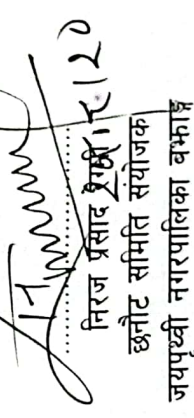 निरज प्रसाद रेग्मी
छनौट समिति संयोजक
जयपृथ्वी नगरपालिका बझाङ